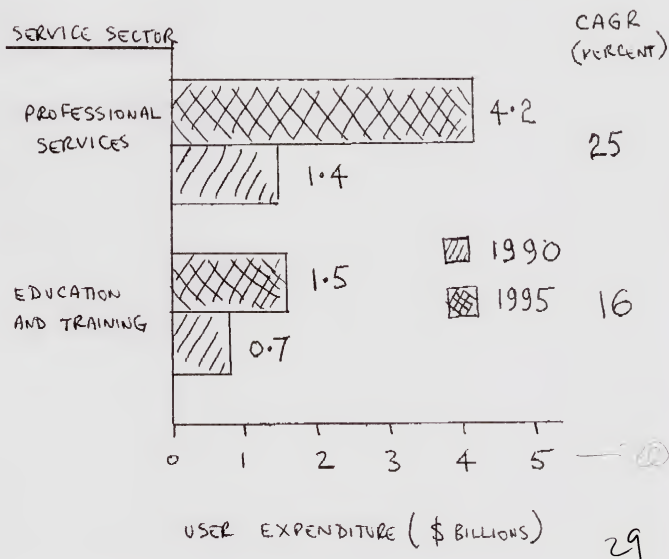 SERVICE SECTOR
CAGR
(PERCENT)
PROFESSIONAL
SERVICES
4.2
1.4
25
EDUCATION
AND TRAINING
1.5
0.7
1990
1995
16
0 1 2 3 4 5
USER EXPENDITURE ($ BILLIONS)
29